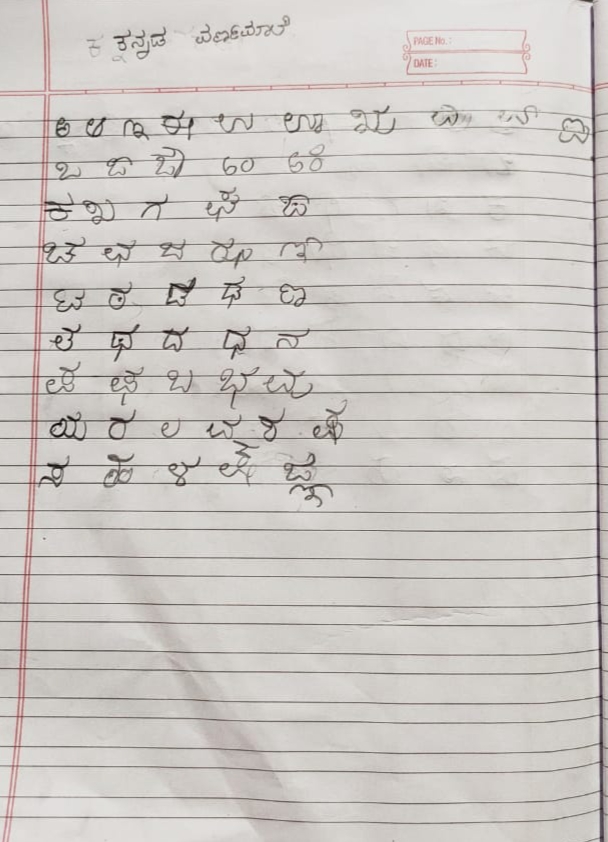 ಕ ಕನ್ನಡ ವರ್ಣಮಾಲೆ
PAGE No.:
DATE:
ಅ ಆ ಇ ಈ ಉ ಊ ಋ ಐ
ಒ ಓ ಔ ಅಂ ಅಃ
ಕ ಖ ಗ ಘ ಙ
ಚ ಛ ಜ ಝ ಞ
ಟ ಠ ಡ ಢ ಣ
ತ ಥ ದ ಧ ನ
ಪ ಫ ಬ ಭ ಮ
ಯ ರ ಲ ವ ಶ ಷ
ಸ ಹ ಳ ಕ್ಷ ಜ್ಞ